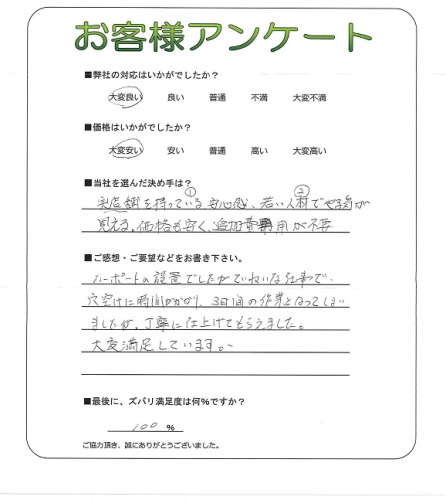 お客様アンケート
■弊社の対応はいかがでしたか?
大変良い 良い 普通 不満 大変不満
■価格はいかがでしたか?
大変安い 安い 普通 高い 大変高い
■当社を選んだ決め手は?
① ②
実店舗を持っている安心感、若い人材でやる気が
見える。価格も安く、追加費用が不要
■ご感想・ご要望などをお書き下さい。
カーポートの設置でしたがていねいな仕事で、
穴空けに時間がかかり、3日間の作業となってしまい
ましたが、丁寧に仕上げてもらえました。
大変満足しています。
■最後に、ズバリ満足度は何%ですか?
100 %
ご協力頂き、誠にありがとうございました。